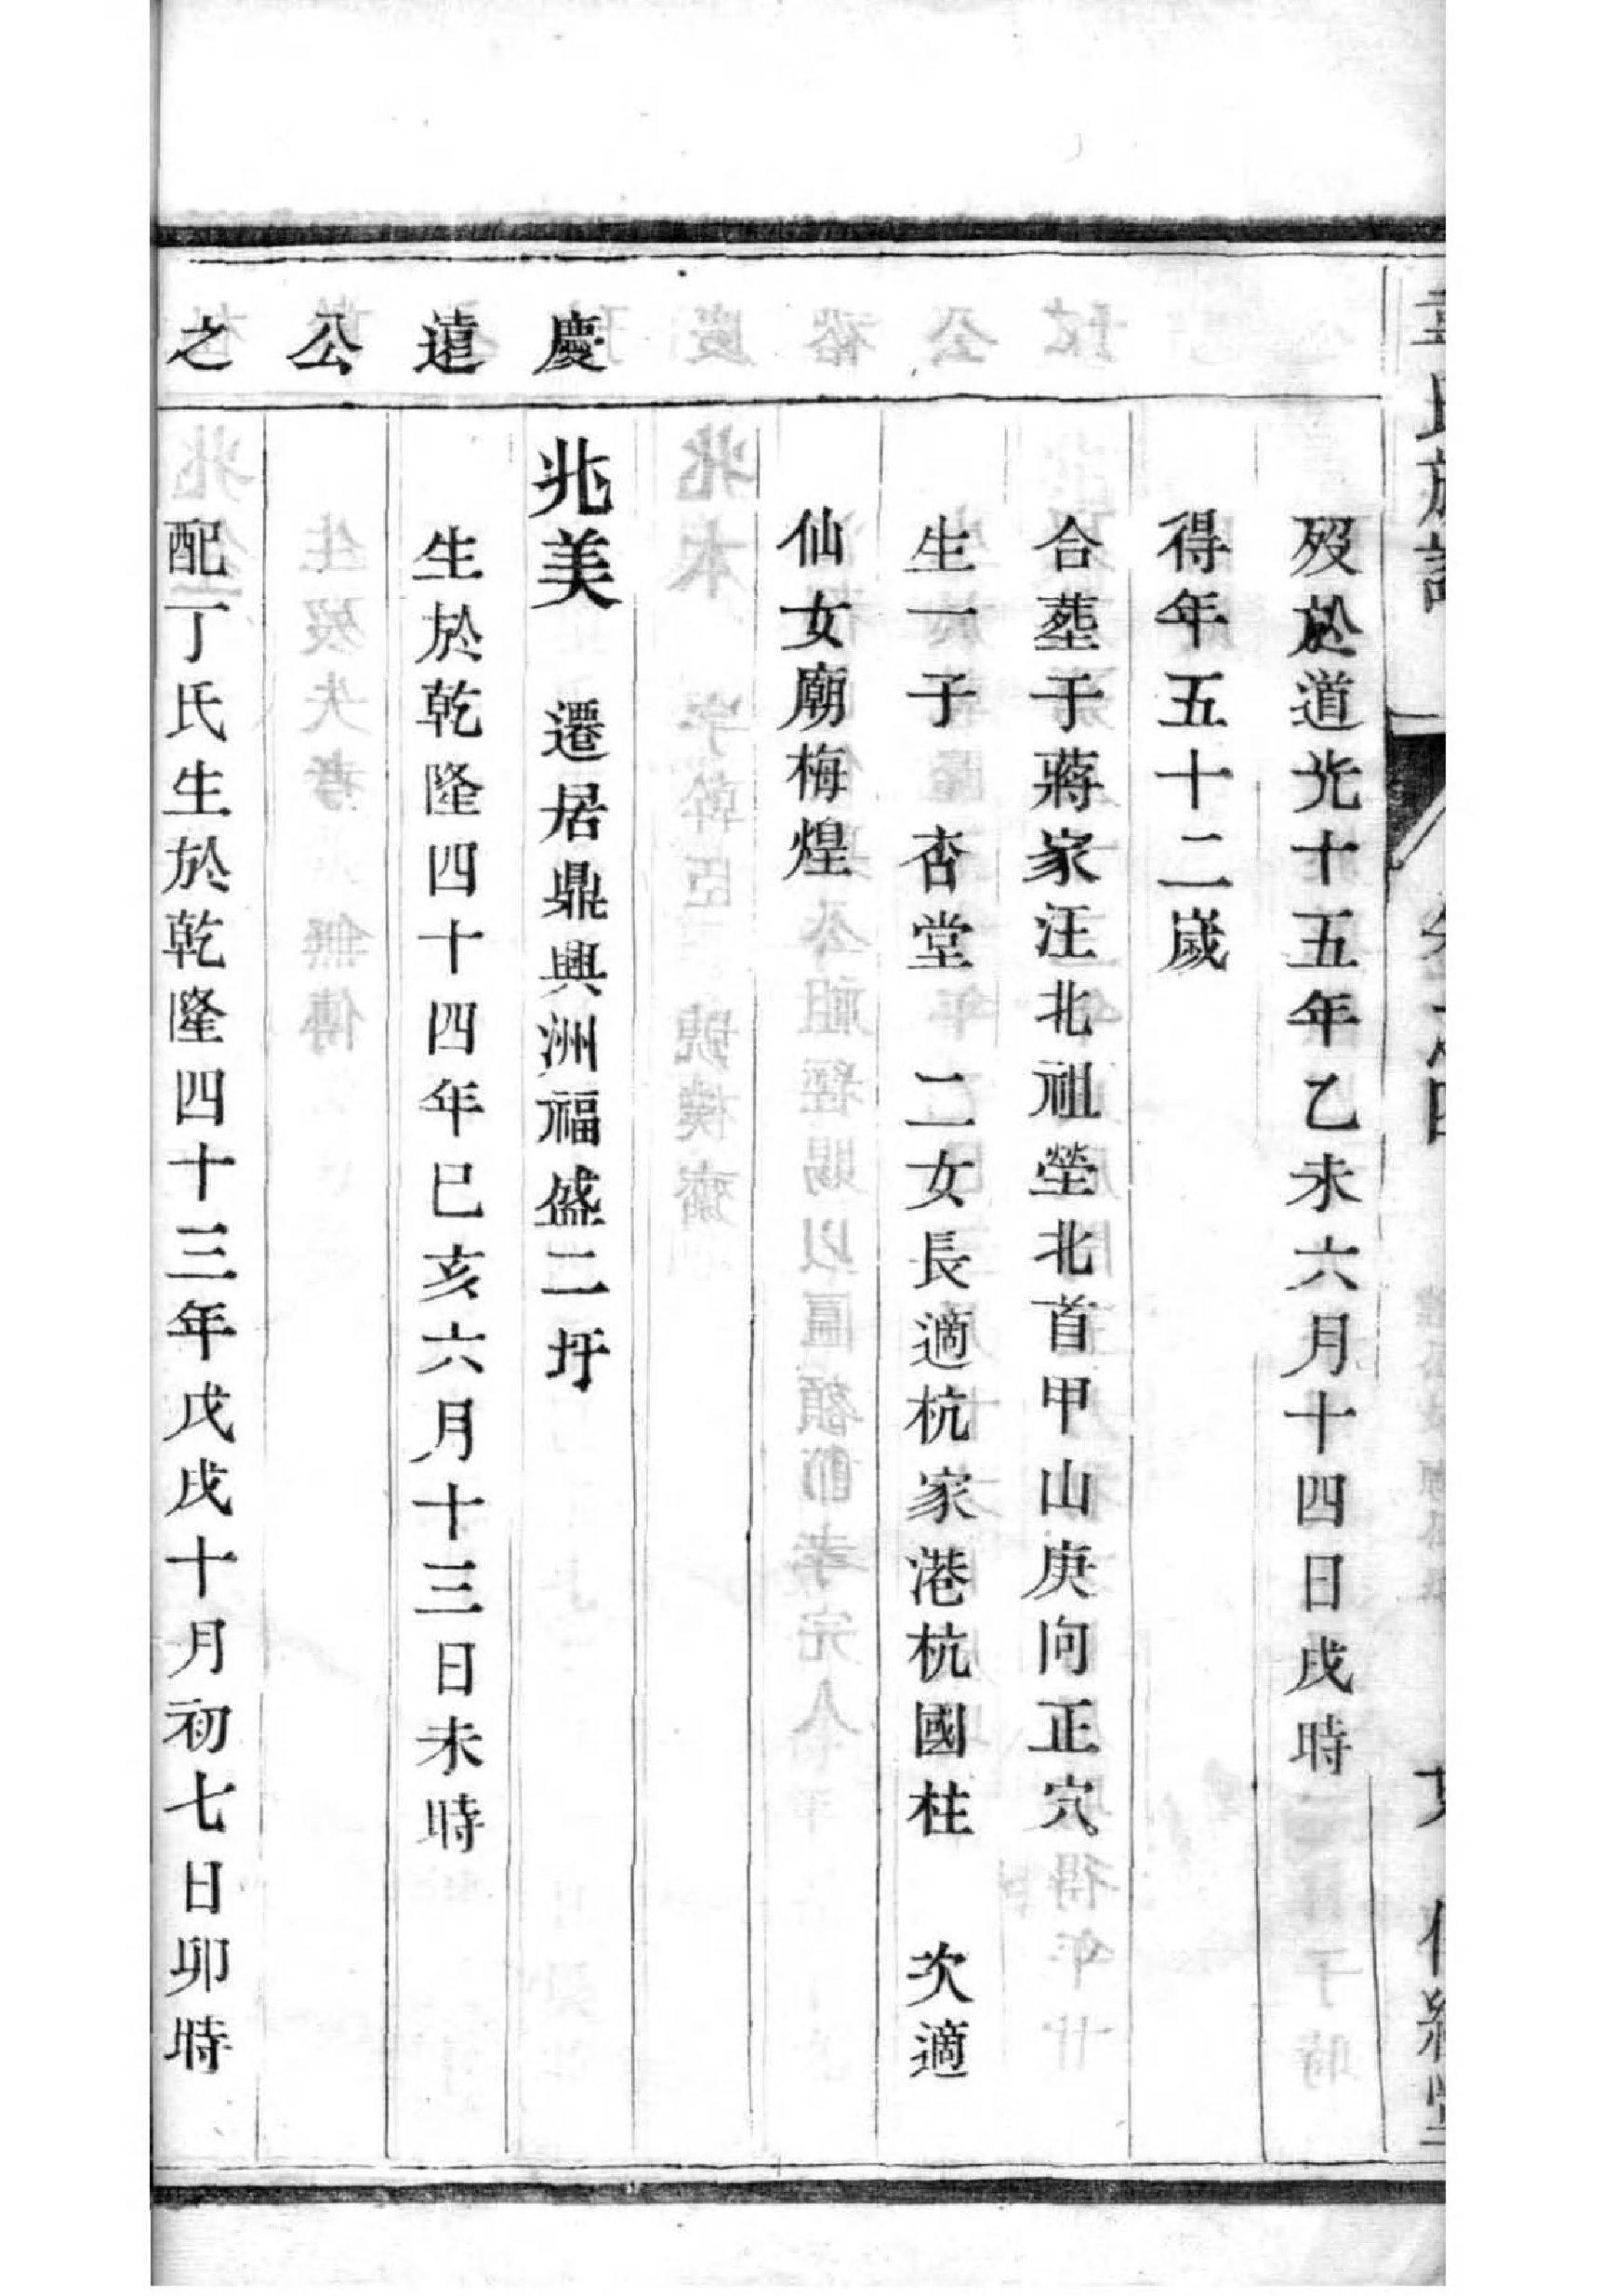 歿於道光十五年乙未六月十四日戌時
得年五十二歲
合塟于蔣家汪北祖塋北首甲山庚向正穴
生一子 杏堂 二女長適杭家港杭國柱 次適
仙女廟梅煌
慶 兆美 遷居鼎興洲福盛二圩
遠 生於乾隆四十四年巳亥六月十三日未時
公
之 配丁氏生於乾隆四十三年戊戌十月初七日卯時